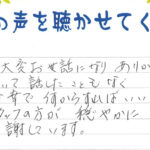 の声を聴かせてく
大変お世話になり ありが
いて話したこともなく
何からすればいい
タッフの方が 穏やかに
謝しています。